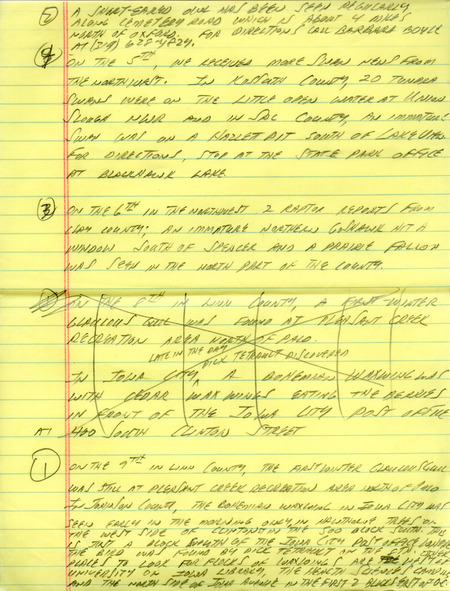 ⑤ A SHORT-EARED OWL HAS BEEN SEEN REGULARLY
ALONG CEMETERY ROAD WHICH IS ABOUT 4 MILES
NORTH OF OXFORD. FOR DIRECTIONS CALL BARBARA BOYLE
AT (319)
④ ON THE 5TH, WE RECEIVED MORE SWAN NEWS FROM
THE NORTHWEST. IN KOSSUTH COUNTY, 20 TUNDRA
SWANS WERE ON THE LITTLE OPEN WATER AT UNION
SLOUGH NWR AND IN SAC COUNTY, AN IMMATURE
SWAN WAS ON A HALLETT PIT SOUTH OF LAKEVIEW
FOR DIRECTIONS, STOP AT THE STATE PARK OFFICE
AT BLACKHAWK LAKE
③ ON THE 6TH IN THE NORTHWEST 2 RAPTOR REPORTS FROM
CLAY COUNTY: AN IMMATURE NORTHERN GOSHAWK HIT A
WINDOW SOUTH OF SPENCER AND A PRAIRIE FALCON
WAS SEEN IN THE NORTH PART OF THE COUNTY.
ON THE 8TH IN LINN COUNTY, A FIRST WINTER
GLAUCOUS GULL WAS FOUND AT PLEASANT CREEK
RECREATION AREA NORTH OF PALO.
LATE IN THE DAY DICK TETRAULT DISCOVERED
IN IOWA CITY, A BOHEMIAN WAXWING WAS
WITH CEDAR WAXWINGS EATING THE BERRIES
IN FRONT OF THE IOWA CITY POST OFFICE
AT 400 SOUTH CLINTON STREET
① ON THE 9TH IN LINN COUNTY, THE FIRST WINTER GLAUCOUS GULL
WAS STILL AT PLEASANT CREEK RECREATION AREA NORTH OF PALO
IN JOHNSON COUNTY, THE BOHEMIAN WAXWING IN IOWA CITY WAS
SEEN EARLY IN THE MORNING ONLY IN HAWTHORNE TREE ON
THE WEST SIDE OF CLINTON IN THE BLOCK SOUTH
IS FIRST BLOCK SOUTH OF THE IOWA CITY POST OFFICE
THE BIRD WAS FOUND BY DICK TETRAULT ON THE 8TH. OTHER
PLACES TO LOOK FOR FLOCKS OF WAXWINGS ARE
UNIVERSITY OF IOWA LIBRARY, THE HEALTH SCIENCES CAMPUS
AND THE NORTH SIDE OF IOWA AVENUE IN THE FIRST 2 BLOCKS EAST OF